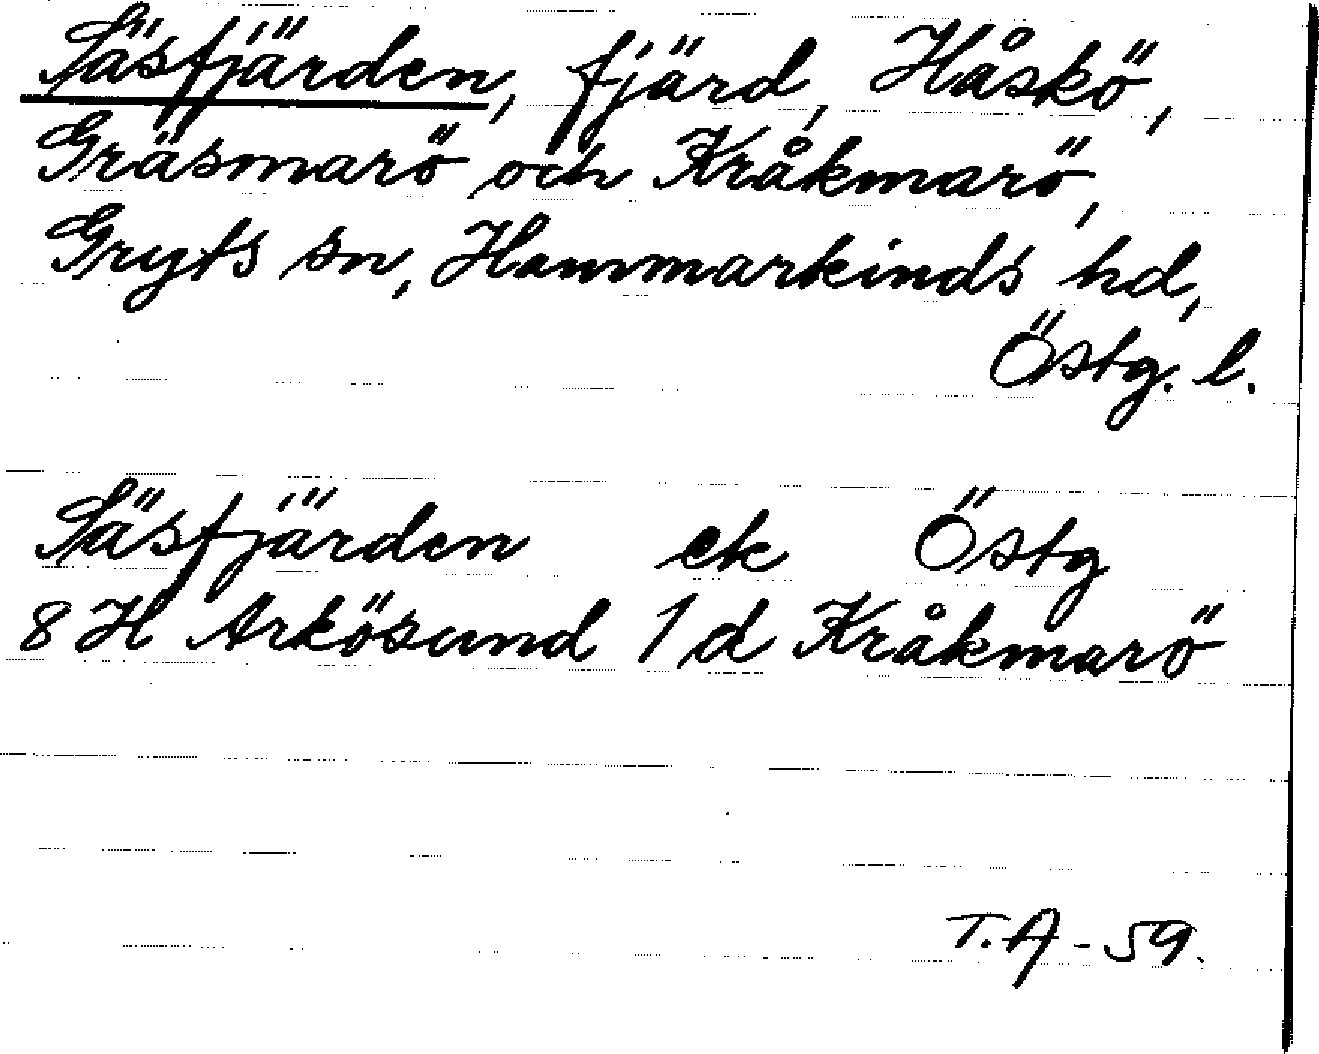 Säsfjärden, fjärd, Håskö,
Gräsmarö och Kråkmarö,
Gryts sn, Hammarkinds hd,
Östg. l.
Säsfjärden ek Östg
8 H Arkösund 1 d Kråkmarö
T.A-59.